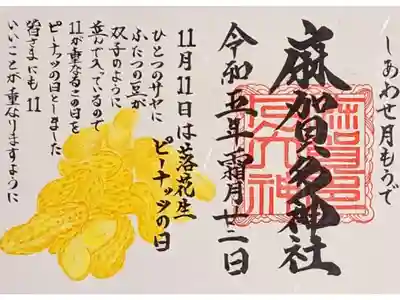 しあわせ月もうで
麻賀多神社
令和五年 霜月廿二日
11月11日は落花生
ピーナッツの日
ひとつのサヤに
ふたつの豆が
双子のように
並んで入っているので
11が重なるこの日を
ピーナッツの日としました
皆さまにも 11
いいことが重なりますように